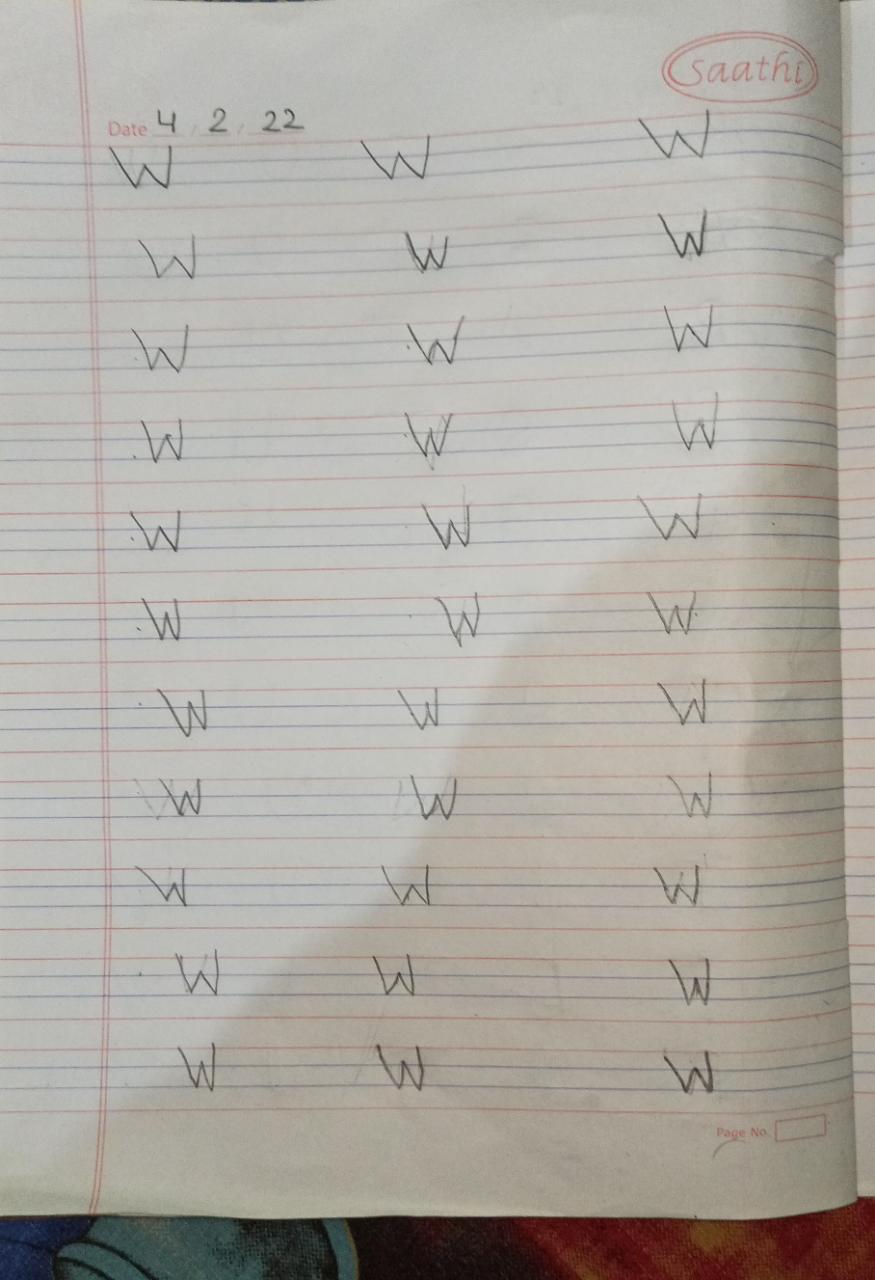 saathi
Date 4, 2, 22
W W W
W W W
W W W
W W W
W W W
W W W
W W W
W W W
W W W
W W W
W W W
Page No.